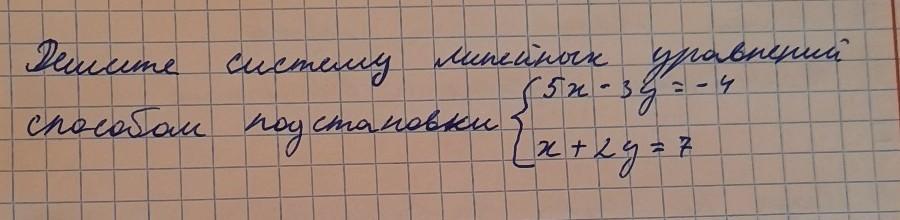 Решите систему линейных уравнений
способом подстановки { 5x - 3y = -4
x + 2y = 7